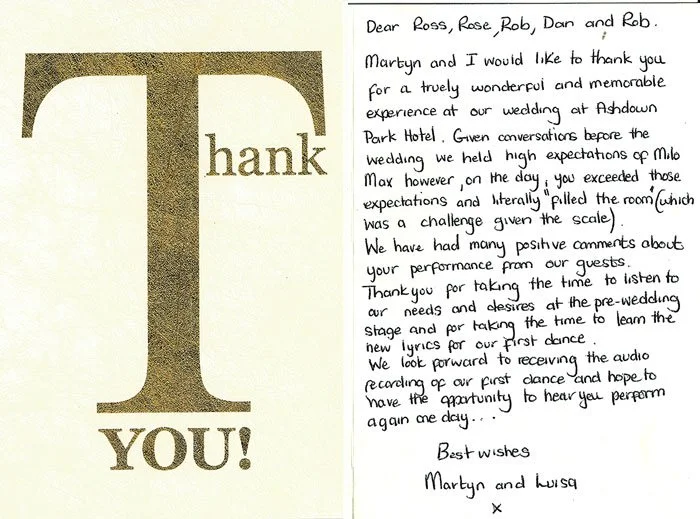 Thank
YOU!
Dear Ross, Rose, Rob, Dan and Rob.
Martyn and I would like to thank you
for a truely wonderful and memorable
experience at our wedding at Ashdown
Park Hotel. Given conversations before the
wedding we held high expectations of Milo
Max however, on the day, you exceeded those
expectations and literally "filled the room" (which
was a challenge given the scale).
We have had many positive comments about
your performance from our guests.
Thankyou for taking the time to listen to
our needs and desires at the pre-wedding
stage and for taking the time to learn the
new lyrics for our first dance.
We look forward to receiving the audio
recording of our first dance and hope to
have the opportunity to hear you perform
again one day...
Best wishes
Martyn and Luisa
x